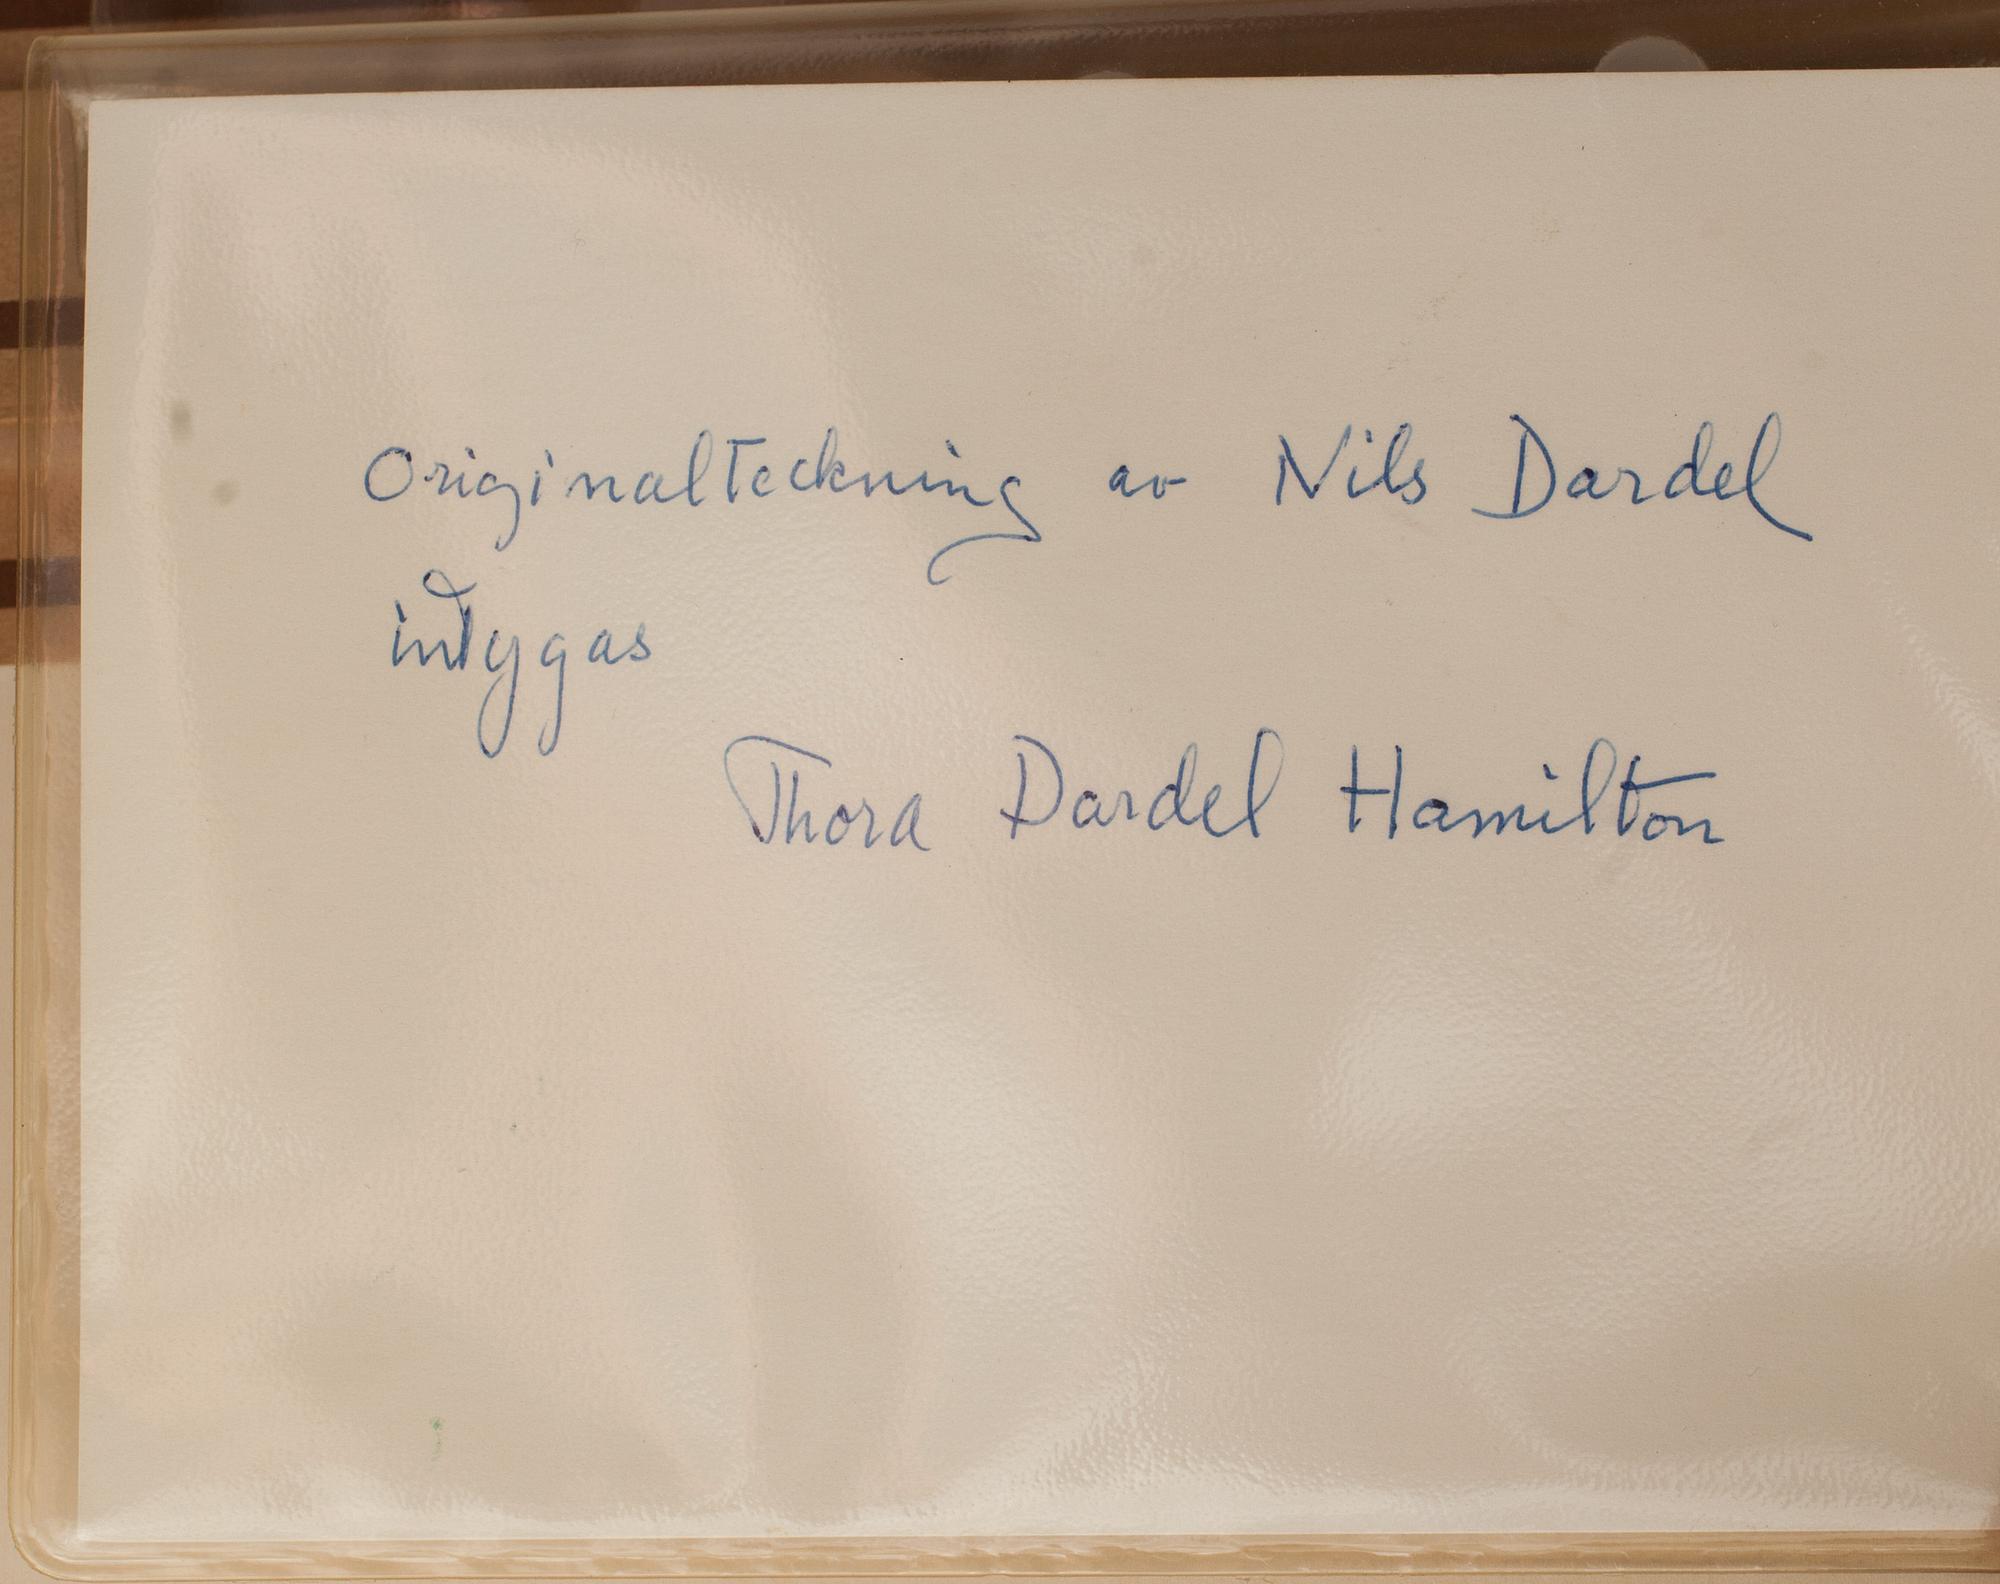 Originalteckning av Nils Dardel
intygas
Thora Dardel Hamilton